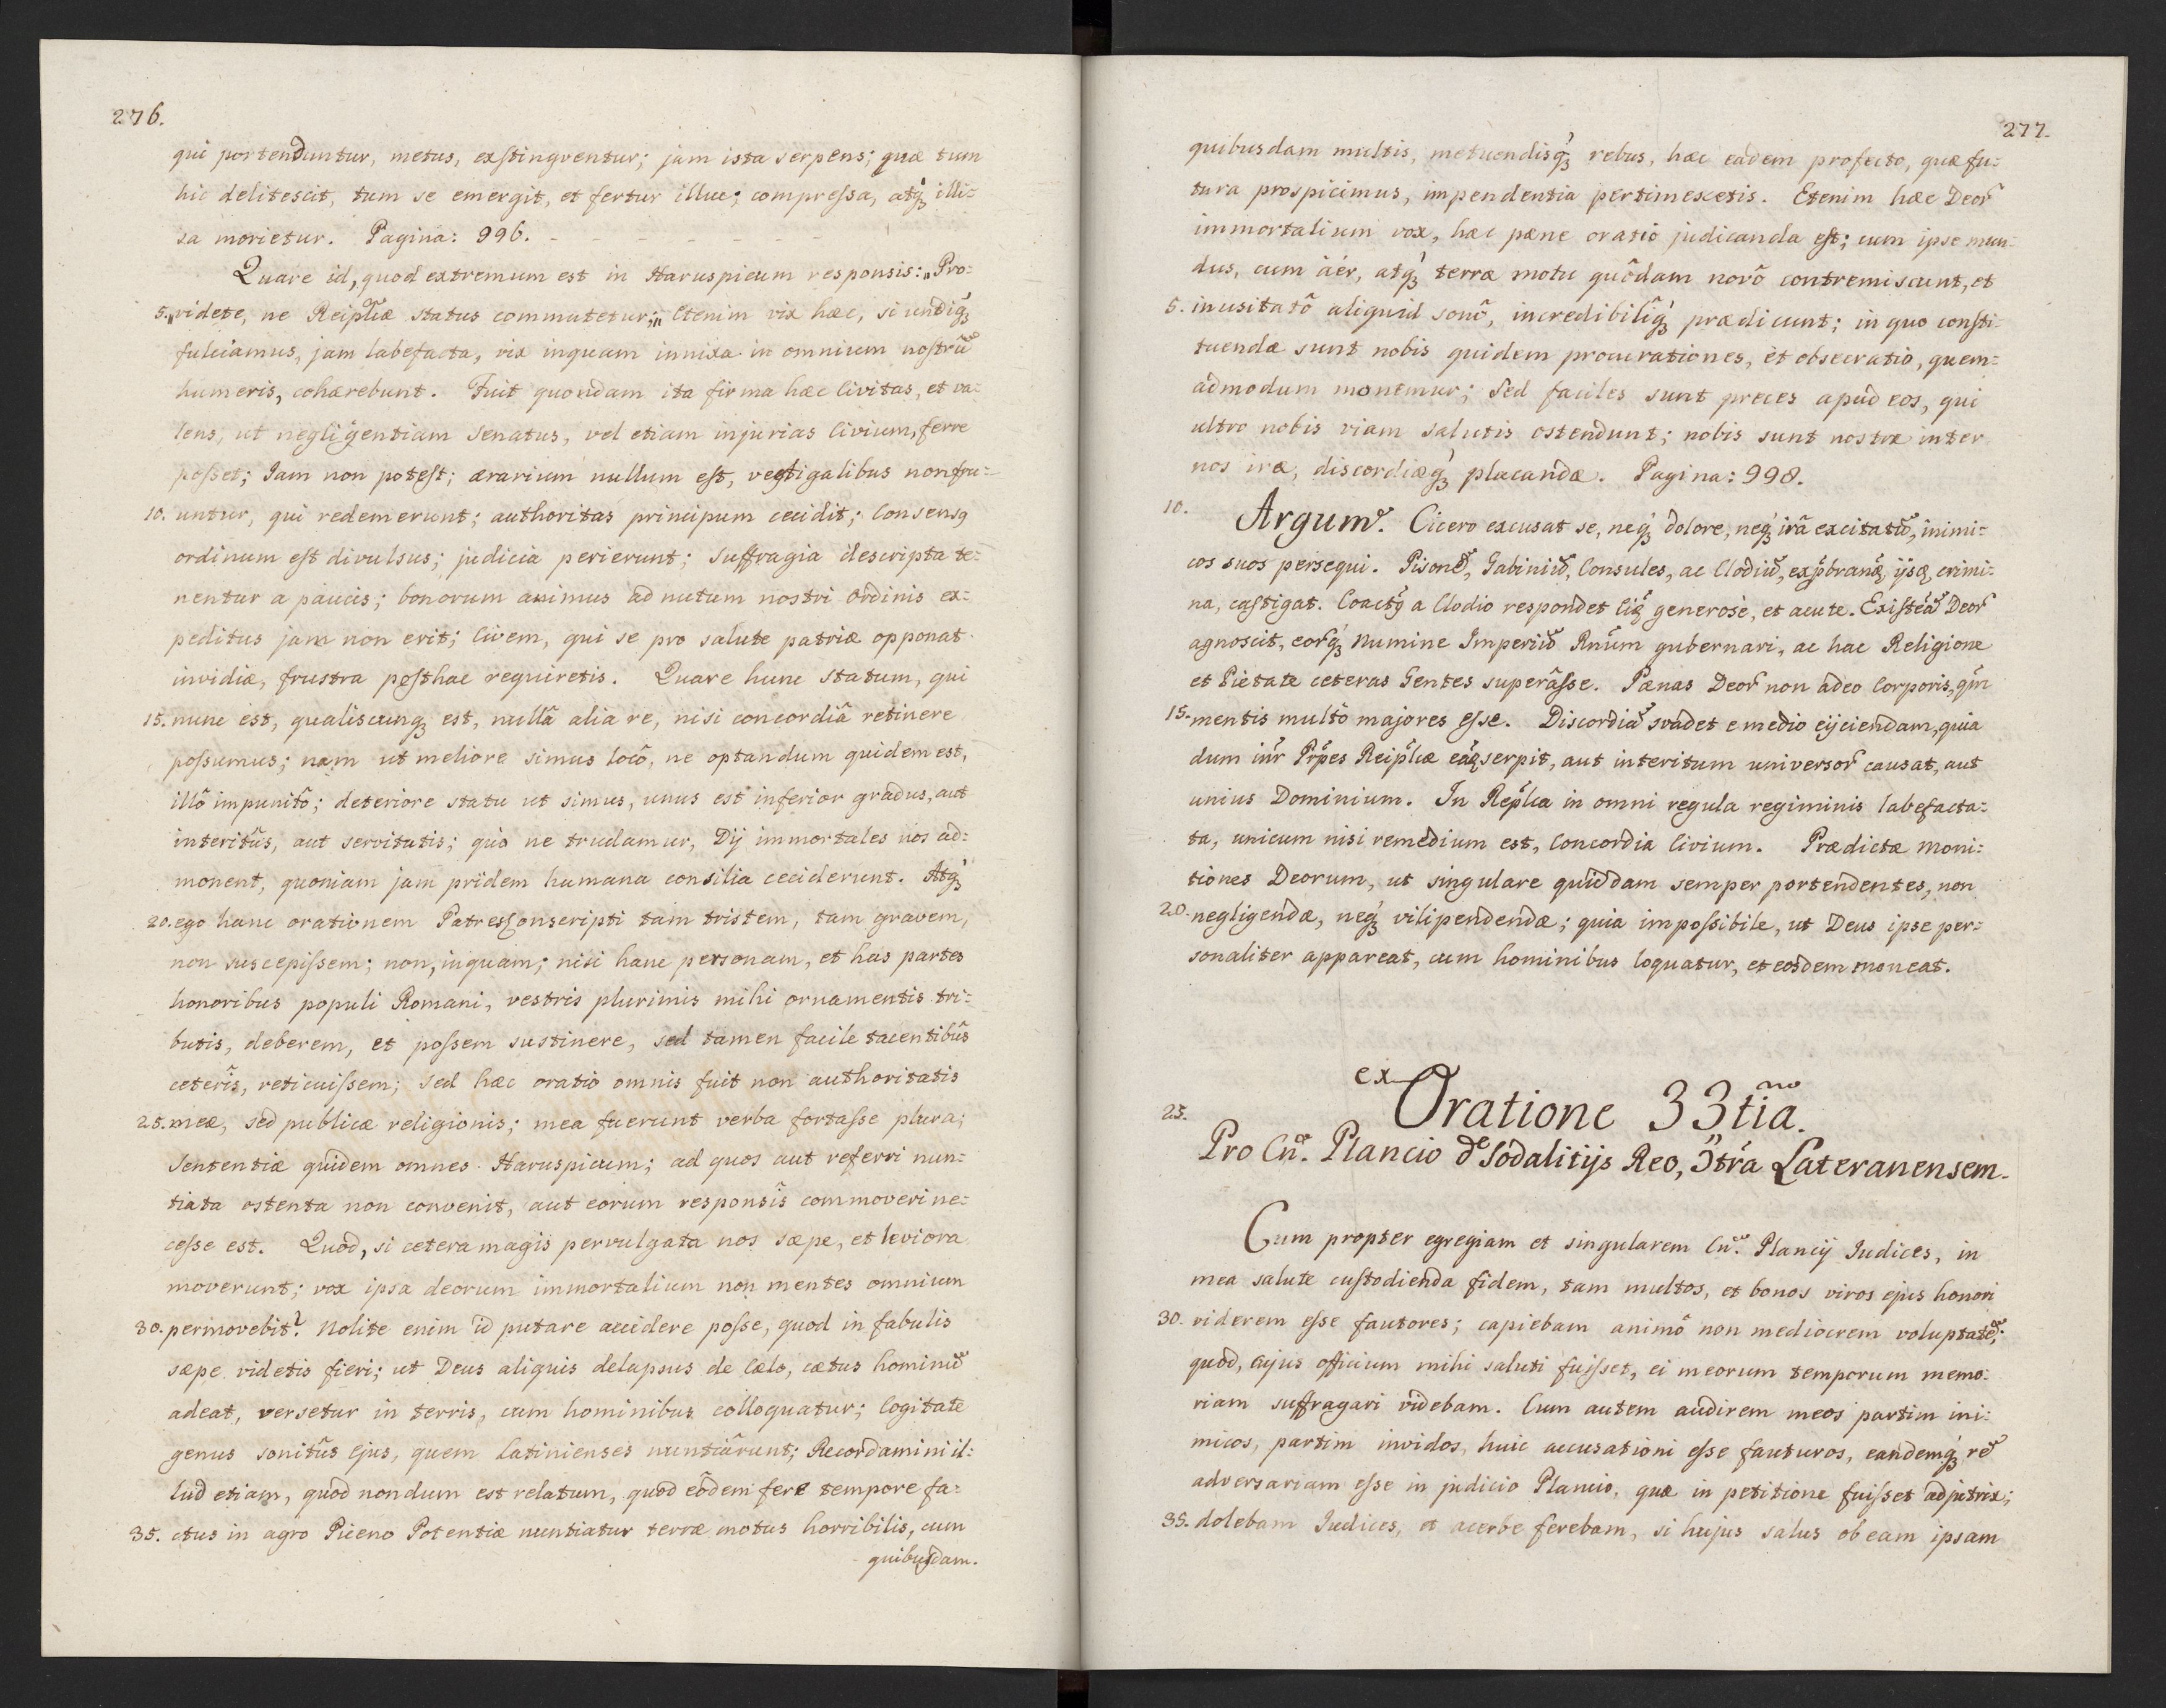 276.
qui portenduntur, metus, exstingventur; jam ista serpens; quæ tum
hic delitescit, tum se emergit, et fertur illuc; compressa, atq́ȝ illi=
sa morietur. Pagina: 996. - - - - - - -
Quare id, quod extremum est in Haruspicum responsis: „Pro=
5. „videte, ne Reipľicæ status commutetur;„ Etenim vix hæc, si undiq́ȝ
fulciamus, jam labefacta, vix inquam innixa in omnium nostrũ
humeris, cohærebunt. Fuit quondam ita firma hæc Civitas, et va=
lens, ut negligentiam Senatus, vel etiam injurias Civium, ferre
posset; Jam non potest; ærarium nullum est, vectigalibus non fru=
10. untur, qui redemerunt; authoritas principum cecidit; Consensꝯ
ordinum est divulsus; judicia perierunt; Suffragia descripta te=
nentur a paucis; bonorum animus ad nutum nostri Ordinis ex=
peditus jam non erit; Civem, qui se pro salute patriæ opponat
invidiæ, frustra posthac requiretis. Quare hunc statum, qui
15. nunc est, qualiscunqȝ est, nullâ alia re, nisi concordiâ retinere
possumus; nam ut meliore simus locô, ne optandum quidem est,
illô impunitô; deteriore statu ut simus, unus est inferior gradus, aut
interitûs, aut servitutis; quò ne trudamur, Dij immortales nos ad=
monent, quoniam jam pridem humana consilia ceciderunt. Atq́ȝ
20. ego hanc orationem Patres Conscripti tam tristem, tam gravem,
non suscepissem; non, inquam; nisi hanc personam, et has partes
honoribus populi Romani, vestris plurimis mihi ornamentis tri=
butis, deberem, et possem sustinere, sed tamen facile tacentibûs
ceterîs, reticuissem; sed hæc oratio omnis fuit non authoritatis
25. meæ, sed publicæ religionis; mea fuerunt verba fortasse plura;
Sententiæ quidem omnes Haruspicum; ad quos aut referri nun=
tiata ostenta non convenit, aut eorum responsîs commoveri ne=
cesse est. Quòd, si cetera magis pervulgata nos sæpe, et leviora
moverunt; vox ipsa deorum immortalium non mentes omnium
30. permovebit? Nolite enim id putare accidere posse, quod in fabulis
sæpe videtis fieri; ut Deus aliquis delapsus de Cælo, cætus hominũ
adeat, versetur in terris, cum hominibus colloquatur; Cogitate
genus sonitûs ejus, quem Latinienses nuntiârunt; Recordamini il=
lud etiam, quòd nondum est relatum, quòd eôdem fere tempore fa=
35. ctus in agro Piceno Potentiæ nuntiatur terræ motus horribilis, cum
quibusdam.
277.
quibusdam multis, metuendisq́ȝ rebus, hæc eadem profecto, quæ fu=
tura prospicimus, impendentia pertimescetis. Etenim hæc Deoř
immortalium vox, hæc pæne oratio judicanda est; cum ipse mun=
dus, cum âer, atq́ȝ terræ motu quôdam novô contremiscunt, et
5. inusitatô aliquid sonô, incredibiliq́ȝ prædicunt; in quo consti=
tuendæ sunt nobis quidem procurationes, et obsecratio, quem=
admodum monemur; Sed faciles sunt preces apud eos, qui
ultro nobis viam salutis ostendunt; nobis sunt nostræ inter
nos iræ, discordiæq́ȝ placandæ. Pagina: 998.
10. Argumͫ. Cicero excusat se, neq́ȝ dolore, neq́ȝ irâ excitatũ, inimi=
cos suos persequi. Pisonẽ, Gabiniũ, Consules, ac Clodiũ, exp̃branđ, ijsꝗ crimi=
na, castigat. Coactꝯ a Clodio respondet eiꝗ generosè, et acute. Existẽã Deoř
agnoscit, eořq́ȝ Numine Imperiũ Rňum gubernari, ac hac Religione
et Pietate ceteras Gentes superâsse. Pænas Deoř non adeo Corporis, q̃m
15. mentis multò majores esse. Discordiã svadet e medio eijciendam, quia
dum iňr Přpes Reipľicæ eãꝗ serpit, aut interitum universoř causat, aut
unius Dominium. In Repľica in omni regula regiminis labefacta=
ta, unicum nisi remedium est, Concordia Civium. Prædictæ moni=
tiones Deorum, ut singulare quiddam semper portendentes, non
20. negligendæ, neq́ȝ vilipendendæ; quia impossibile, ut Deus ipse per=
sonaliter appareat, cum hominibus loquatur, et eosdem moneat.
ex Oratione 33tiaͫͦ.
25.
Pro Cnͦ. Plancio de Sodalitijs Reo, Ɔ̃tra Lateranensem.
Cum propter egregiam et singularem Cnͥ. Plancij Judices, in
mea salute custodienda fidem, tam multos, et bonos viros ejus honori
30. viderem esse fautores; capiebam animô non mediocrem voluptatẽ;
quòd, cujus officium mihi saluti fuisset, ei meorum temporum memo=
riam suffragari videbam. Cum autem audirem meos partim ini=
micos, partim invidos, huic accusationi esse fauturos, eandemq́ȝ rẽ
adversariam esse in judicio Plancio, quæ in petitione fuisset adjutrix;
35. dolebam Judices, et acerbe ferebam, si hujus salus ob eam ipsam